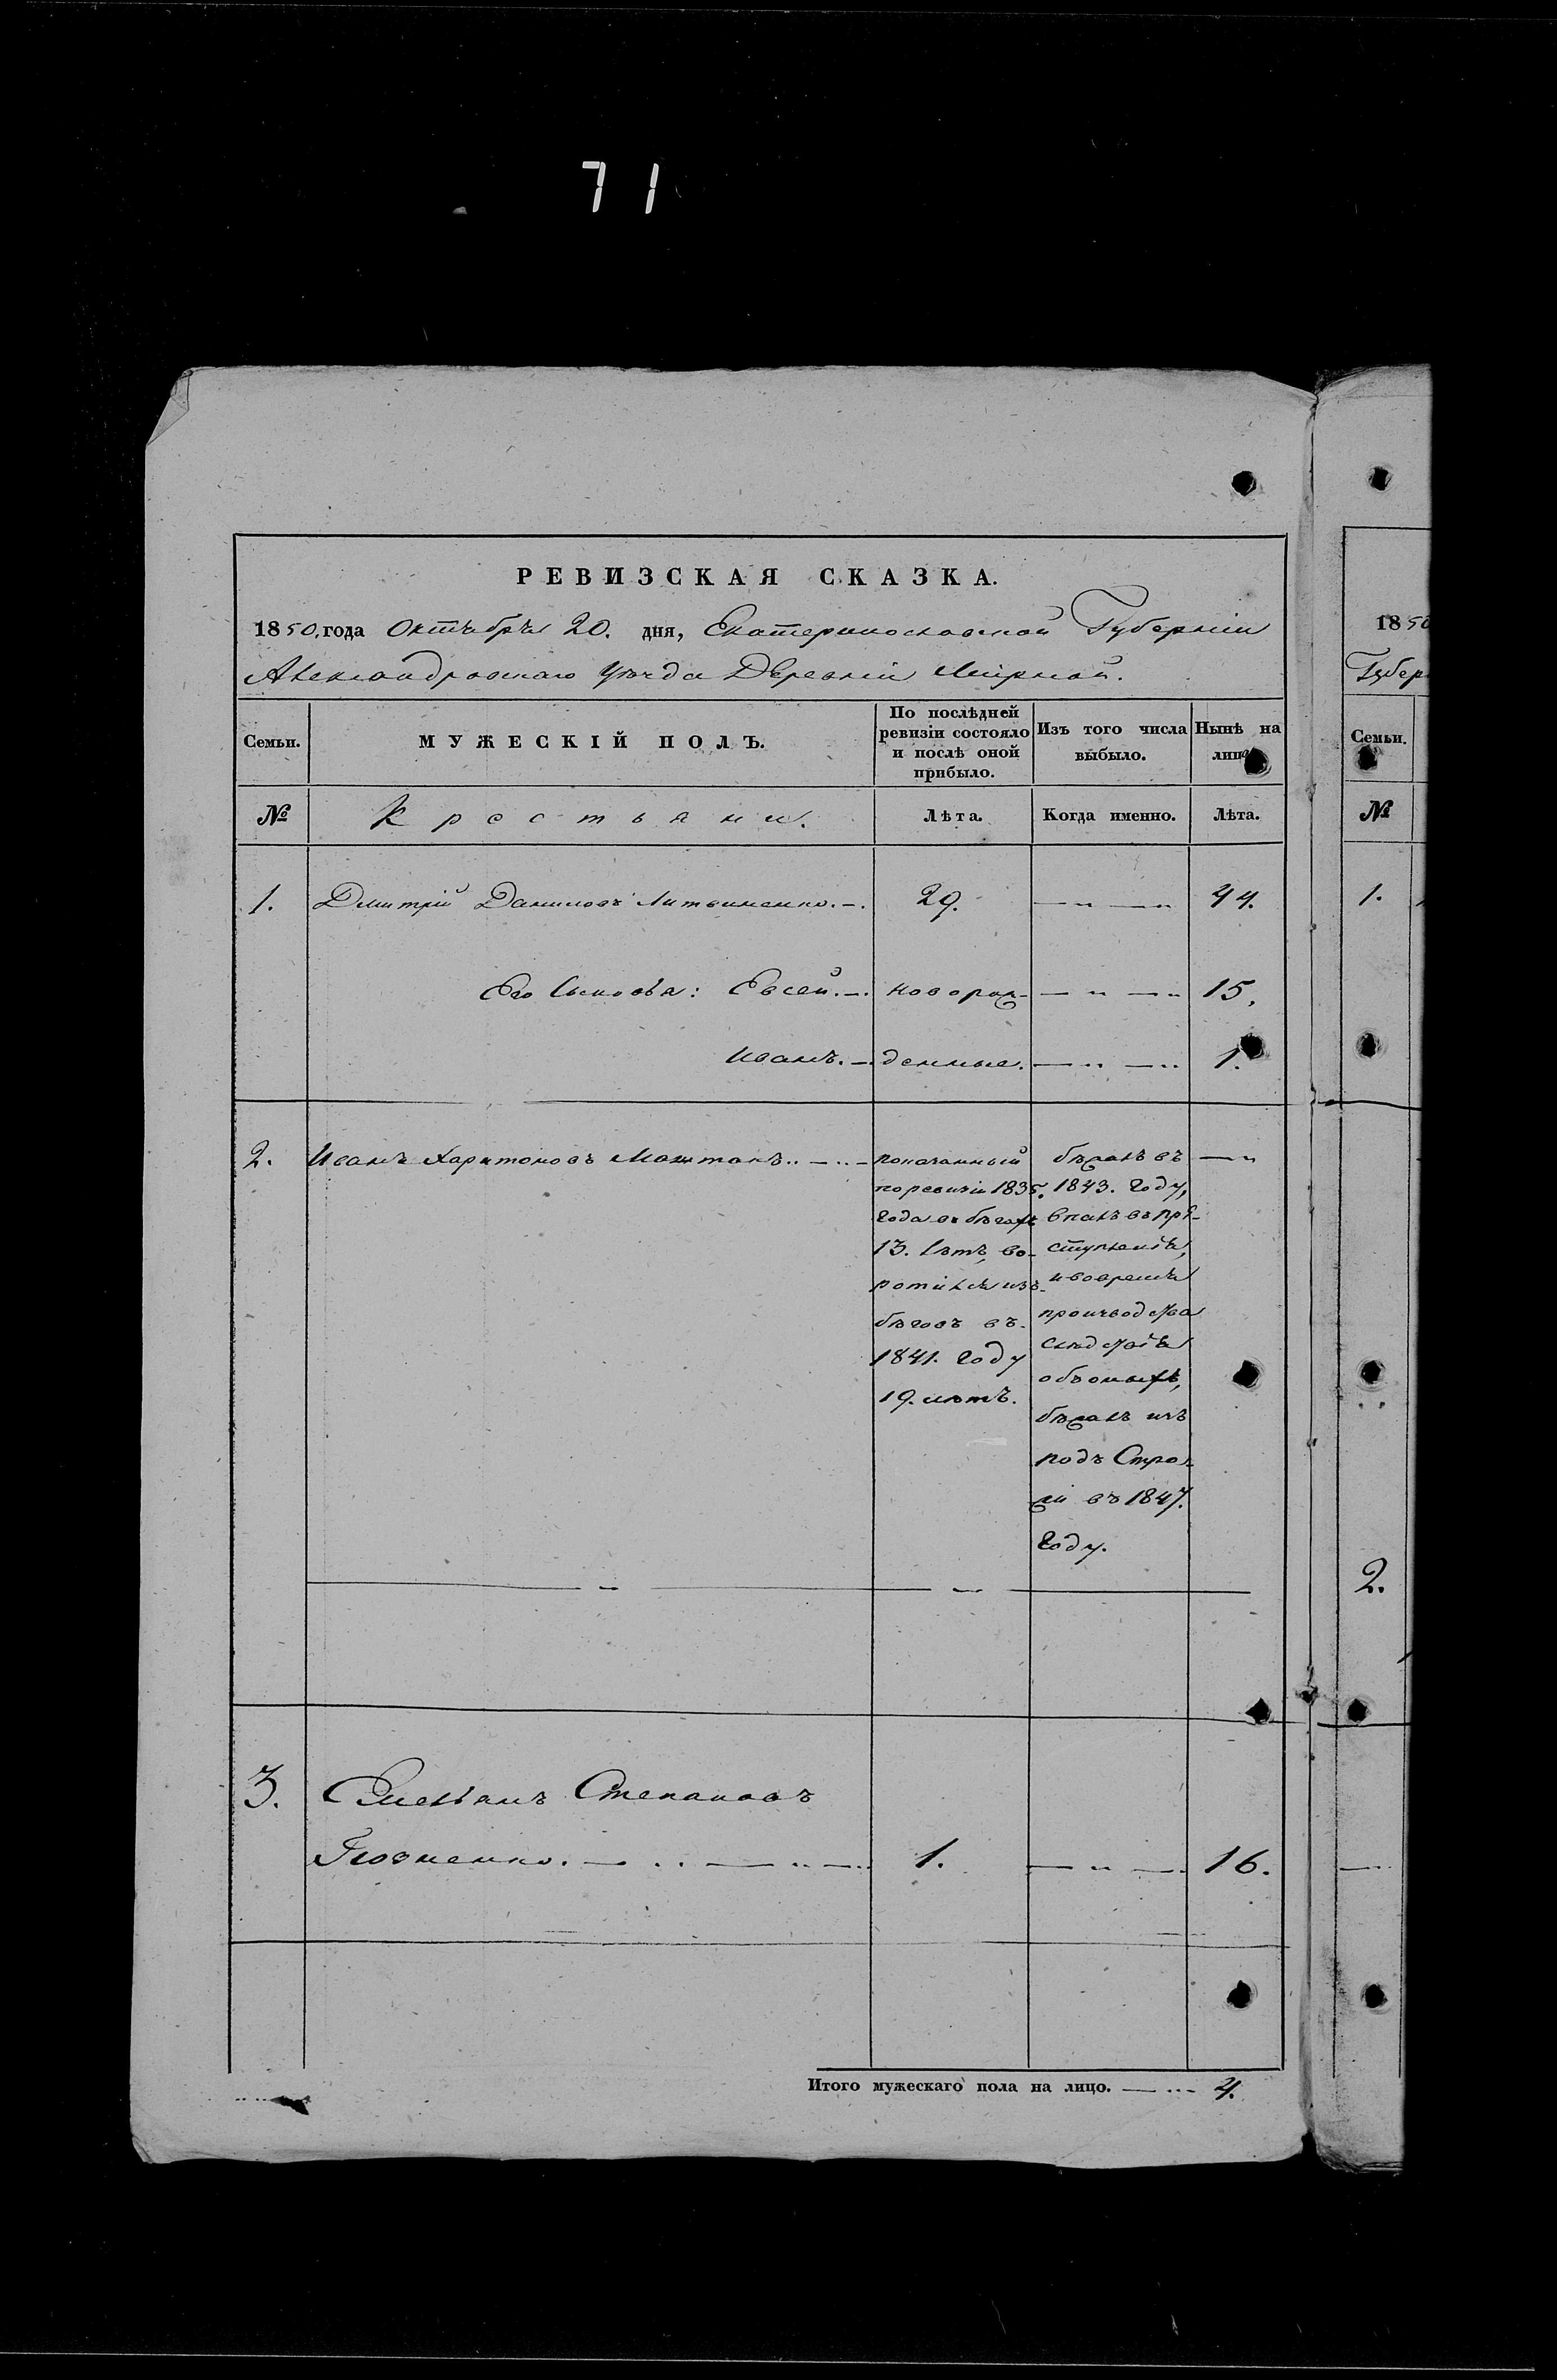 71
РЕВИЗСКАЯ СКАЗКА.
1850, года Октября 20. дня, Екатеринославской Губерніи
Александровскаго Уѣзда Деревни Мирной.
Семьи. МУЖЕСКІЙ ПОЛЪ. По послѣдней ревизіи состояло и послѣ оной прибыло. Изъ того числа выбыло. Нынѣ на лицо
№ Крестьяни. Лѣта. Когда именно. Лѣта.
1. Дмитрій Даниловъ Литвиненко. 29. 44.
Его Сыновья: Евсей. новорож- 15.
Иванъ. денные. 1.
2. Иванъ Харитоновъ
показанный
по ревизіи 1835.
года въ бѣгахъ
13. лѣтъ, во-
ротился изъ
бѣговъ въ
1841. году
19. лѣтъ.
бѣжалъ въ
1843. году,
впалъ въ пре-
ступленія,
и во время
производства
слѣдствія
объ оныхъ,
бѣжалъ изъ
подъ Стра-
жи въ 1847.
году.
3. Емельянъ Степановъ
1. 16.
Итого мужескаго пола на лицо. 4.
1850
Губер
Семьи.
№
1.
2.